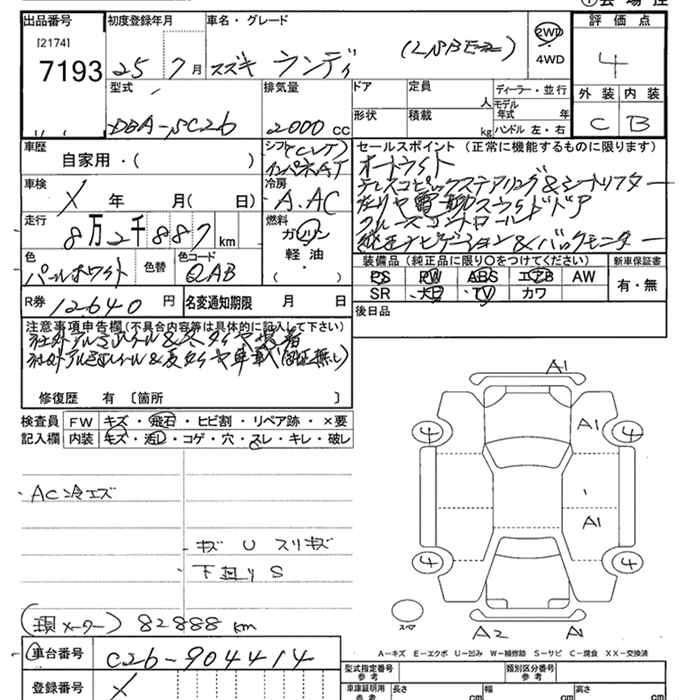 ①会場控
出品番号 初度登録年月 車名・グレード 2WD 4WD 評価点
[2174]
7193 25 7月 スズキ ランディ 4
型式 排気量 ドア 定員 人 ディーラー・並行 外装 内装
形状 積載 kg モデル年式 年 ハンドル 左・右
DBA-SC26 2000 CC C B
車歴 シフト セールスポイント (正常に機能するものに限ります)
自家用・( ) インパネAT オートライト
テレスコピックステアリング&シートリフター
車検 冷房
X 年 月( 日) A.AC 左リヤ電動スライドドア
走行 燃料 クルーズコントロール
8万2千887km ガソリン 純正ナビゲーション&バックモニター
軽油・( )
色 色替 色コード 装備品 (純正品に限り○をつけてください) 新車保証書
パールホワイト QAB PS PW ABS エアB AW 有・無
SR TV カワ
R券 12640 円 名変通知期限 月 日 後日品
注意事項申告欄(不具合内容等は具体的に記入して下さい)
社外アルミホイール&冬タイヤ装着
社外アルミホイール&夏タイヤ車載(保証無し)
修復歴 有 [箇所 ]
検査員 FW キズ・飛石・ヒビ割・リペア跡・×要
記入欄 内装 キズ・汚レ・コゲ・穴・スレ・キレ・破レ
・AC冷エズ
・キズ U スリキズ
下廻りS
(現メーター) 82888 km
A1
4 A1 4
A1
4 4
スペア A2 A1
A-キズ E-エクボ U-凹み W-補修跡 S-サビ C-腐食 XX-交換済
車台番号 C26-904414 型式指定番号 参考 類別区分番号 参考
登録番号 X 車庫証明用 参考 長さ cm 幅 cm 高さ cm